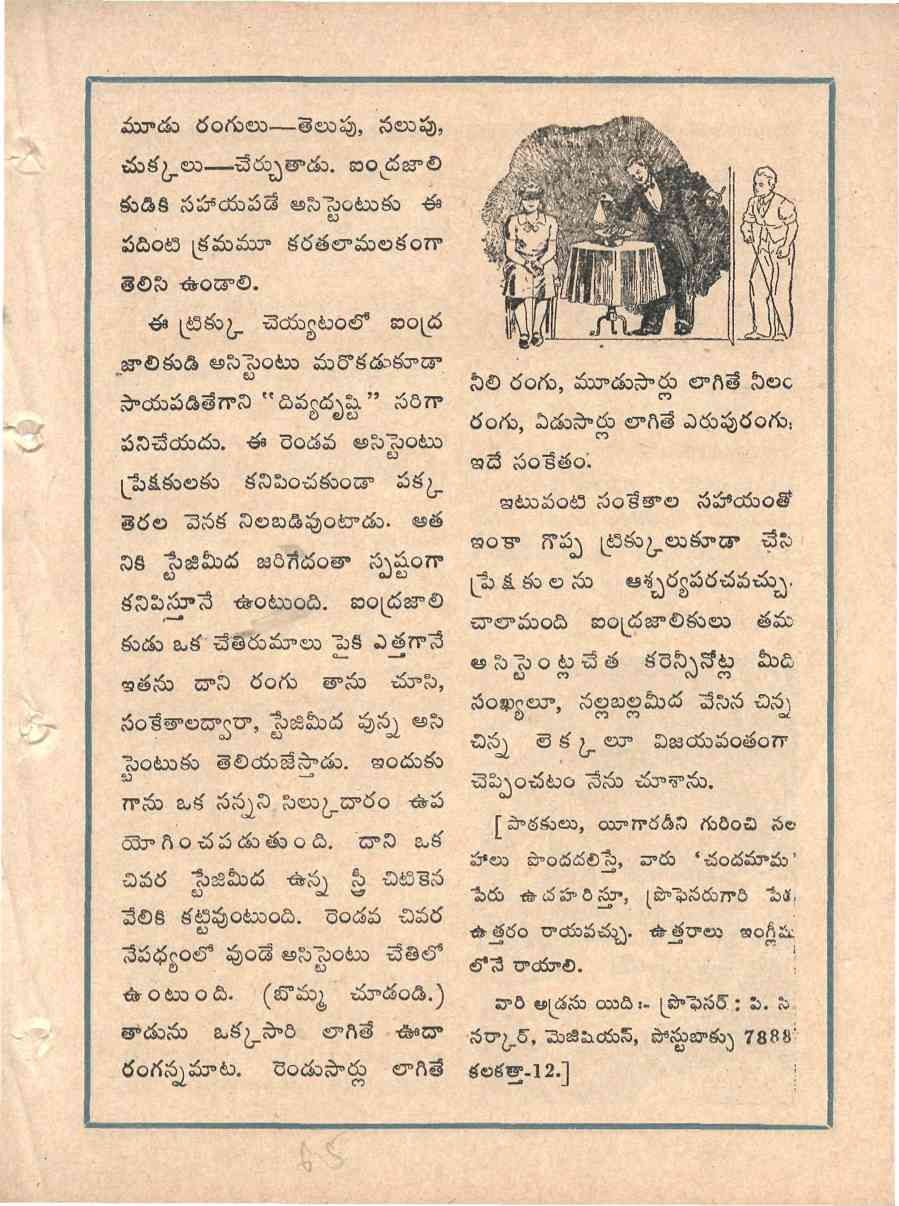 మూడు రంగులు—తెలుపు, నలుపు,
చుక్కలు—చేర్చుతాడు. ఐంద్రజాలి
కుడికి సహాయపడే అసిస్టెంటుకు ఈ
పదింటి క్రమమూ కరతలామలకంగా
తెలిసి ఉండాలి.
ఈ ట్రిక్కు చెయ్యటంలో ఐంద్ర
జాలికుడి అసిస్టెంటు మరొకడుకూడా
సాయపడితేగాని “దివ్యదృష్టి” సరిగా
పనిచేయదు. ఈ రెండవ అసిస్టెంటు
ప్రేక్షకులకు కనిపించకుండా పక్క
తెరల వెనక నిలబడివుంటాడు. అత
నికి స్టేజిమీద జరిగేదంతా స్పష్టంగా
కనిపిస్తూనే ఉంటుంది. ఐంద్రజాలి
కుడు ఒక చేతిరుమాలు పైకి ఎత్తగానే
ఇతను దాని రంగు తాను చూసి,
సంకేతాలద్వారా, స్టేజిమీద వున్న అసి
స్టెంటుకు తెలియజేస్తాడు. ఇందుకు
గాను ఒక సన్నని సిల్కుదారం ఉప
యోగించపడుతుంది. దాని ఒక
చివర స్టేజిమీద ఉన్న స్త్రీ చిటికెన
వేలికి కట్టివుంటుంది. రెండవ చివర
నేపథ్యంలో వుండే అసిస్టెంటు చేతిలో
ఉంటుంది. (బొమ్మ చూడండి.)
తాడును ఒక్కసారి లాగితే ఊదా
రంగన్నమాట. రెండుసార్లు లాగితే
నీలి రంగు, మూడుసార్లు లాగితే నీలం
రంగు, ఏడుసార్లు లాగితే ఎరుపురంగు;
ఇదే సంకేతం.
ఇటువంటి సంకేతాల సహాయంతో
ఇంకా గొప్ప ట్రిక్కులుకూడా చేసి
ప్రేక్షకులను ఆశ్చర్యపరచవచ్చు.
చాలామంది ఐంద్రజాలికులు తమ
అసిస్టెంట్లచేత కరెన్సీనోట్ల మీది
సంఖ్యలూ, నల్లబల్లమీద వేసిన చిన్న
చిన్న లెక్కలూ విజయవంతంగా
చెప్పించటం నేను చూశాను.
[పాఠకులు, యీగారడీని గురించి సల
హాలు పొందదలిస్తే, వారు ‘చందమామ’
పేరు ఉదహరిస్తూ, ప్రొఫెసరుగారి పేర
ఉత్తరం రాయవచ్చు. ఉత్తరాలు ఇంగ్లీషు
లోనే రాయాలి.
వారి అడ్రసు యిది :- ప్రొఫెసర్ : పి. సి.
సర్కార్, మెజిషియన్, పోస్టుబాక్సు 7888
కలకత్తా-12.]